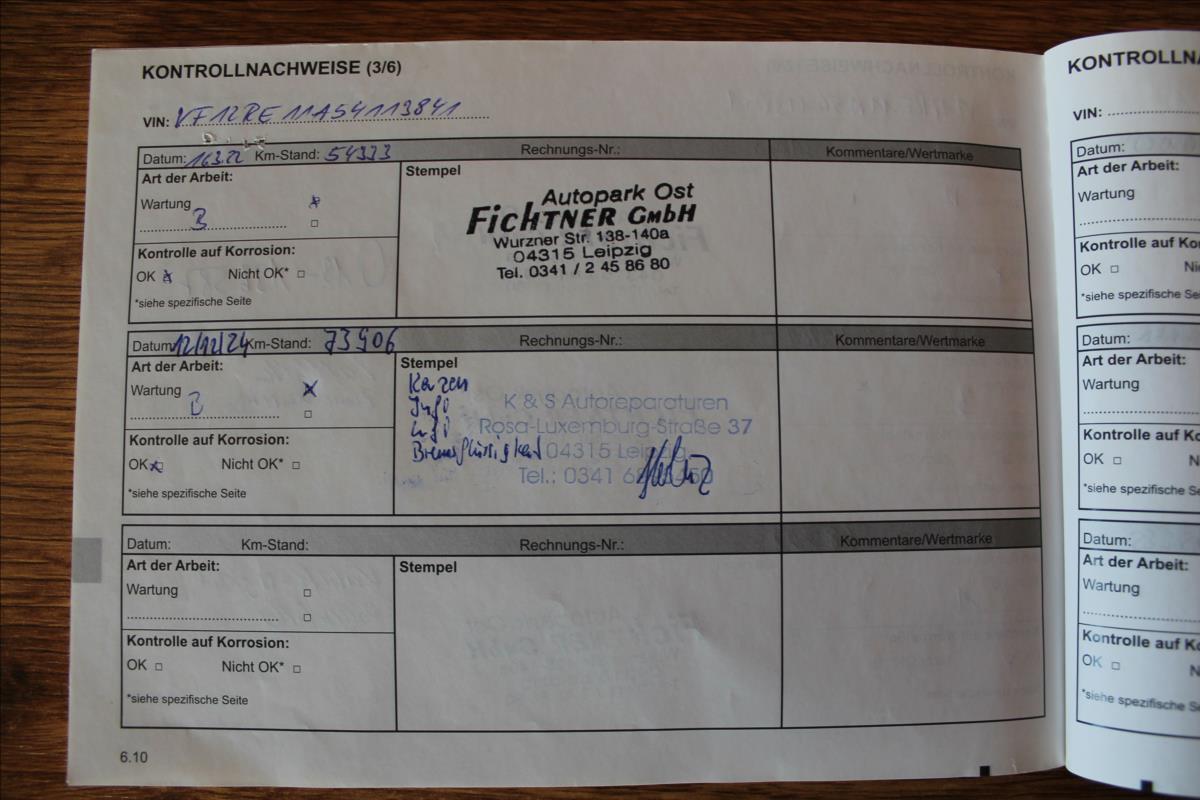 KONTROLLNACHWEISE (3/6)
VIN: VF12RE11A54113841
Datum: 16.3.22 Km-Stand: 54333 Rechnungs-Nr.: Kommentare/Wertmarke
Art der Arbeit:
Wartung
B
Kontrolle auf Korrosion:
OK Nicht OK*
*siehe spezifische Seite
Stempel
Autopark Ost
FICHTNER GMBH
Wurzner Str. 138-140a
04315 Leipzig
Tel. 0341 / 2 45 86 80
Datum: 12/12/24 Km-Stand: 73906 Rechnungs-Nr.: Kommentare/Wertmarke
Art der Arbeit:
Wartung
B
Kontrolle auf Korrosion:
OK Nicht OK*
*siehe spezifische Seite
Stempel
Kerzen
Bremsflüssigkeit
K & S Autoreparaturen
Rosa-Luxemburg-Straße 37
04315 Leipzig
Tel.: 0341
Datum: Km-Stand: Rechnungs-Nr.: Kommentare/Wertmarke
Art der Arbeit:
Wartung
Kontrolle auf Korrosion:
OK Nicht OK*
*siehe spezifische Seite
Stempel
6.10
KONTROLLNA
VIN:
Datum:
Art der Arbeit:
Wartung
Kontrolle auf Ko
OK Ni
*siehe spezifische Se
Datum:
Art der Arbeit:
Wartung
Kontrolle auf Ko
OK N
*siehe spezifische Se
Datum:
Art der Arbeit:
Wartung
Kontrolle auf Ko
OK N
*siehe spezifische Se